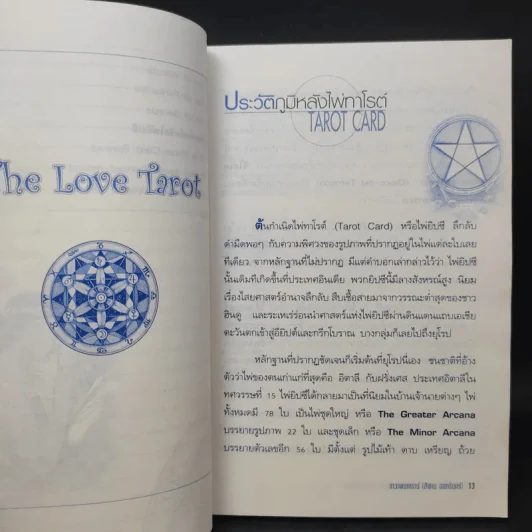 The Love Tarot
ประวัติภูมิหลังไพ่ทาโรต์
TAROT CARD
ต้นกำเนิดไพ่ทาโรต์ (Tarot Card) หรือไพ่ยิปซี ลึกลับ
ดำมืดพอๆ กับความพิศวงของรูปภาพที่ปรากฏอยู่ในไพ่แต่ละใบเลย
ทีเดียว จากหลักฐานที่ไม่ปรากฏ มีแต่คำบอกเล่ากล่าวไว้ว่า ไพ่ยิปซี
นั้นเดิมทีเกิดขึ้นที่ประเทศอินเดีย พวกยิปซีนี้มีลางสังหรณ์สูง นิยม
เรื่องไสยศาสตร์อำนาจลึกลับ สืบเชื้อสายมาจากวรรณะต่ำสุดของชาว
ฮินดู และระเหเร่ร่อนนำศาสตร์แห่งไพ่ยิปซีผ่านดินแดนแถบเอเชีย
ตะวันตกเข้าสู่อียิปต์และกรีกโบราณ บางกลุ่มก็เลยไปถึงยุโรป
หลักฐานที่ปรากฏชัดเจนก็เริ่มต้นที่ยุโรปนี่เอง ชนชาติที่อ้าง
ตัวว่าไพ่ของตนเก่าแก่ที่สุดคือ อิตาลี กับฝรั่งเศส ประเทศอิตาลีใน
ทศวรรษที่ 15 ไพ่ยิปซีได้กลายมาเป็นที่นิยมในบ้านเจ้านายต่างๆ ไพ่
ทั้งหมดมี 78 ใบ เป็นไพ่ชุดใหญ่ หรือ The Greater Arcana
บรรยายรูปภาพ 22 ใบ และชุดเล็ก หรือ The Minor Arcana
บรรยายตัวเลขอีก 56 ใบ มีตั้งแต่ รูปไม้เท้า ดาบ เหรียญ ถ้วย
13